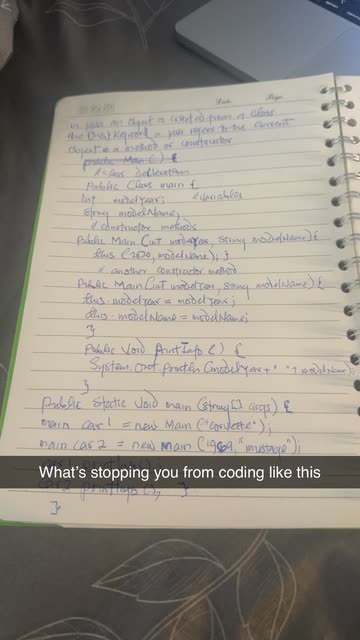 Date Page
in java an object is created from a class
the this keyword in java refers to the current
object in a method or constructor
public Main () {
// class declaration
Public Class main {
int modelyear; // variables
String modelName;
// constructor methods
Public Main (int modelyear, String modelName) {
this (2020, modelName); }
// another constructor method
Public Main (int modelyear, String modelName) {
this.modelyear = modelyear;
this.modelName = modelName;
}
Public Void PrintInfo () {
System.out.println (modelyear + " " + modelName);
}
public static void main (String[] args) {
main car1 = new Main ("corvette");
main car2 = new Main (1969, "mustage");
What's stopping you from coding like this
car2 printInfo(); }
}